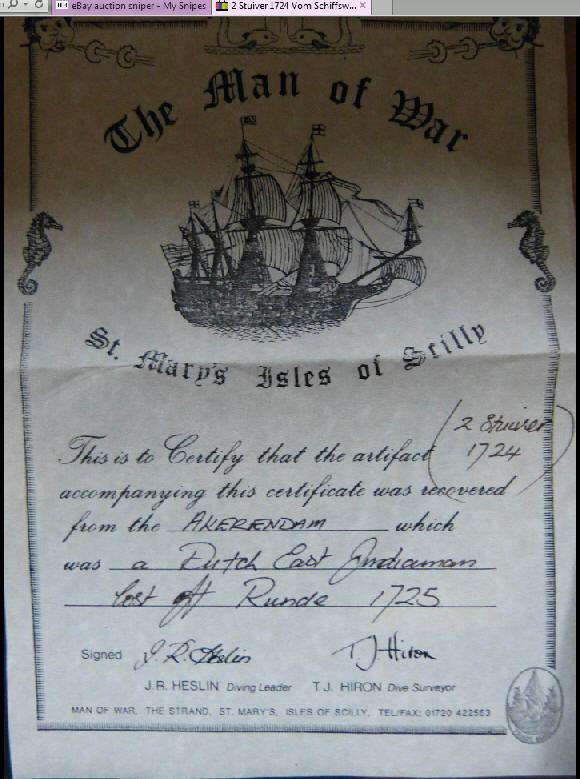 eBay auction sniper - My Snipes
2 Stuiver 1724 Vom Schiffsw...
The Man of War
St. Mary's Isles of Scilly
(2 Stuiver
1724)
This is to Certify that the artifact
accompanying this certificate was recovered
from the AKERENDAM which
was a Dutch East Indiaman
lost off Runde 1725
Signed J.R. Heslin T.J. Hiron
J.R. HESLIN Diving Leader T.J. HIRON Dive Surveyor
MAN OF WAR, THE STRAND, ST. MARY'S, ISLES OF SCILLY, TEL/FAX: 01720 422563